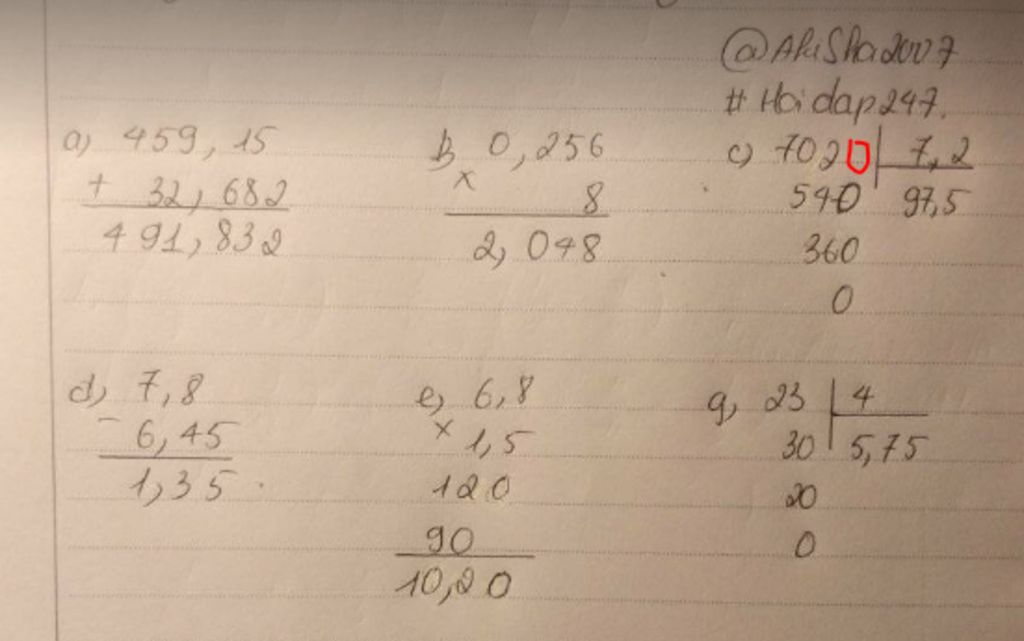 @AkiSha2007
# Hoidap247.
a) 459,15
+ 32,682
491,832
b) 0,256
x
8
2,048
c) 7020 7,2
540 97,5
360
0
d) 7,8
- 6,45
1,35
e) 6,8
x 1,5
120
90
10,20
g) 23 4
30 5,75
20
0